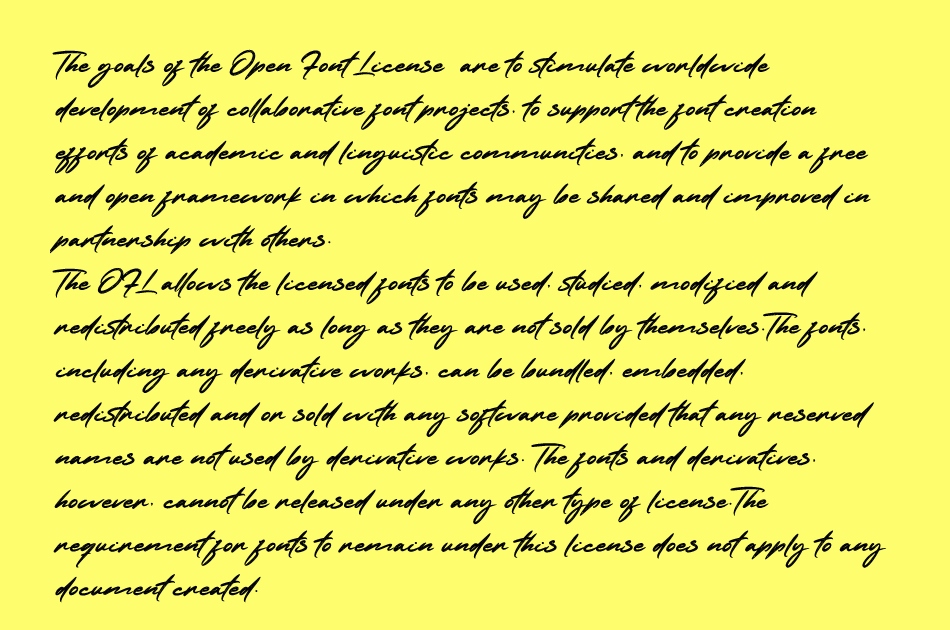 The goals of the Open Font License are to stimulate worldwide
development of collaborative font projects. to support the font creation
efforts of academic and linguistic communities. and to provide a free
and open framework in which fonts may be shared and improved in
partnership with others.
The OFL allows the licensed fonts to be used. studied. modified and
redistributed freely as long as they are not sold by themselves.The fonts.
including any derivative works. can be bundled. embedded.
redistributed and or sold with any software provided that any reserved
names are not used by derivative works. The fonts and derivatives.
however. cannot be released under any other type of license.The
requirement for fonts to remain under this license does not apply to any
document created.